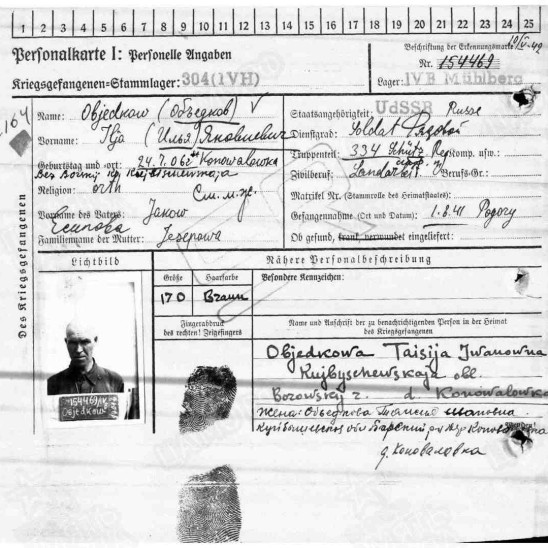 1 2 3 4 5 6 7 8 9 10 11 12 13 14 15 16 17 18 19 20 21 22 23 24 25
Personalkarte I: Personelle Angaben
Kriegsgefangenen-Stammlager: 304 (IVH)
Beschriftung der Erkennungsmarke
Nr. 154469
Lager: IVB Mühlberg
Des Kriegsgefangenen
Name: Objedkow (Объедков) V
Vorname: Ilja (Илья) Яковлевич
Geburtstag und -ort: 24.7.06 Konowalowka
Religion: orth
См. м. ж.
Vorname des Vaters: Jakow
Есипова
Familienname der Mutter: Jesepowa
UdSSR
Staatsangehörigkeit: Russe
Dienstgrad: Soldat Рядовой
Truppenteil: 334 Schütz Reg Komp. usw.:
Zivilberuf: Landarbeit. Berufs-Gr.:
Matrikel Nr. (Stammrolle des Heimatstaates):
Gefangennahme (Ort und Datum): 1.8.41 Pogory
Ob gesund, krank, verwundet eingeliefert:
Lichtbild
154469 IVB
Objedkow
Nähere Personalbeschreibung
Größe Haarfarbe Besondere Kennzeichen:
170 Braun
Fingerabdruck
des rechten! Zeigefingers
Name und Anschrift der zu benachrichtigenden Person in der Heimat
des Kriegsgefangenen
Objedkowa Taisija Iwanowna
Kujbyschewskaja obl.
Borowsky r. d. Konowalowka
Жена: Объедкова Таисия Ивановна
д. Коноваловка